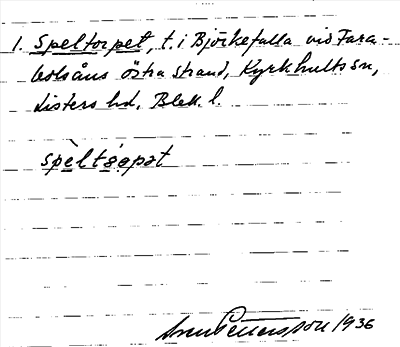 1. Speltorpet, t. i Björkefalla vid Fara-
bolsåns östra strand, Kyrkhults sn,
Listers hd, Blek. l.
spèltórpət
Sven Pettersson 1936